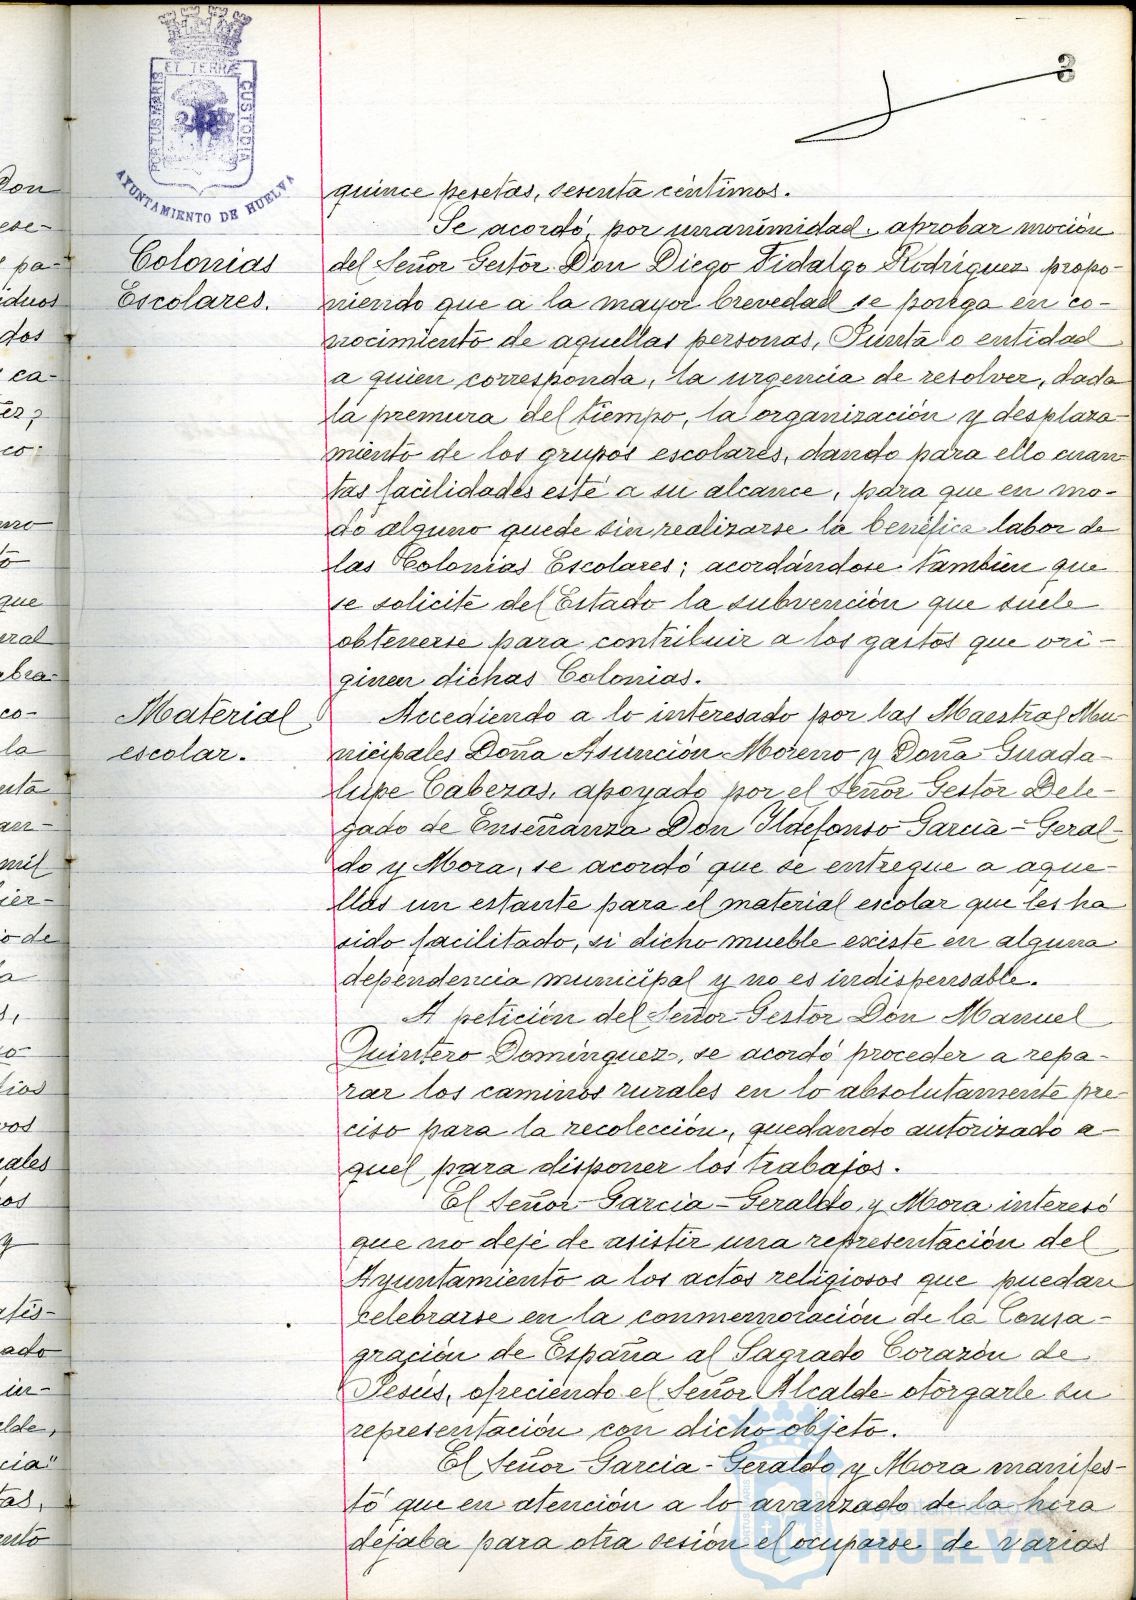 3
PORTUS MARIS ET TERRÆ CUSTODIA
AYUNTAMIENTO DE HUELVA
quince pesetas, sesenta céntimos.
Colonias
Escolares.
Se acordó, por unanimidad, aprobar moción
del Señor Gestor Don Diego Fidalgo Rodríguez propo-
niendo que a la mayor brevedad se ponga en co-
nocimiento de aquellas personas, Junta o entidad
a quien corresponda, la urgencia de resolver, dada
la premura del tiempo, la organización y desplaza-
miento de los grupos escolares, dando para ello cuan-
tas facilidades esté a su alcance, para que en mo-
do alguno quede sin realizarse la benéfica labor de
las Colonias Escolares; acordándose también que
se solicite del Estado la subvención que suele
obtenerse para contribuir a los gastos que ori-
ginen dichas Colonias.
Material
escolar.
Accediendo a lo interesado por las Maestras Mu-
nicipales Doña Asunción Moreno y Doña Guada-
lupe Cabezas, apoyado por el Señor Gestor Dele-
gado de Enseñanza Don Ildefonso García-Geral-
do y Mora, se acordó que se entregue a aque-
llas un estante para el material escolar que les ha
sido facilitado, si dicho mueble existe en alguna
dependencia municipal y no es indispensable.
A petición del Señor Gestor Don Manuel
Quintero Domínguez, se acordó proceder a repa-
rar los caminos rurales en lo absolutamente pre-
ciso para la recolección, quedando autorizado a-
quel para disponer los trabajos.
El Señor García-Geraldo y Mora interesó
que no deje de asistir una representación del
Ayuntamiento a los actos religiosos que puedan
celebrarse en la conmemoración de la Consa-
gración de España al Sagrado Corazón de
Jesús, ofreciendo el Señor Alcalde otorgarle su
representación con dicho objeto.
El Señor García-Geraldo y Mora manifes-
tó que en atención a lo avanzado de la hora
dejaba para otra sesión el ocuparse de varias
Ayuntamiento de
HUELVA